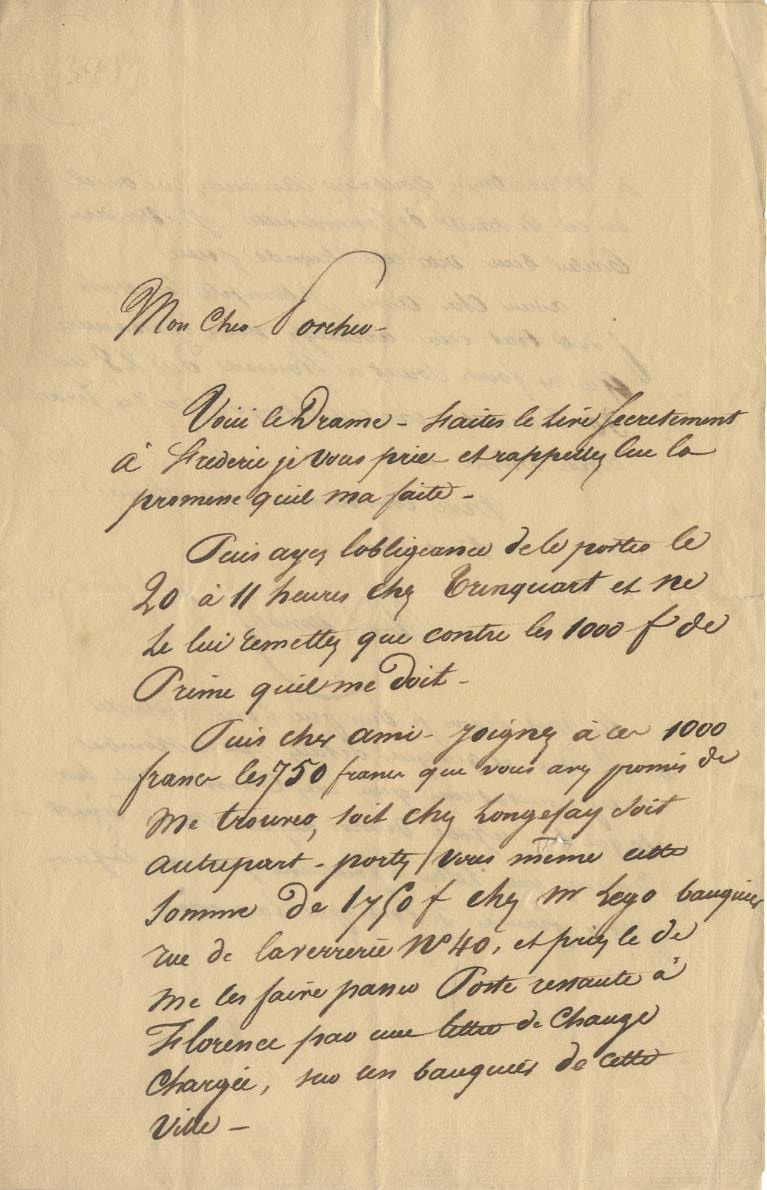 Mon cher Porcher
Voici le Drame - Faites le lire secretement
à Frederic je vous prie et rappellez lui la
promesse quil ma faite -
Puis ayez lobligeance de le porter le
20 à 11 heures chez Trinquart et ne
le lui remettez que contre les 1000 f de
Prime quil me doit -
Puis cher ami - joignez à ces 1000
francs les 750 francs que vous avez promis de
me trouver, soit chez Longefay soit
autrepart - portez vous même cette
somme de 1750 f chez Mr Lego banquier
rue de laverrerie No 40, et priez le de
me les faire passer Poste restante à
Florence par une lettre de Change
Chargée, sur un banquier de cette
ville -